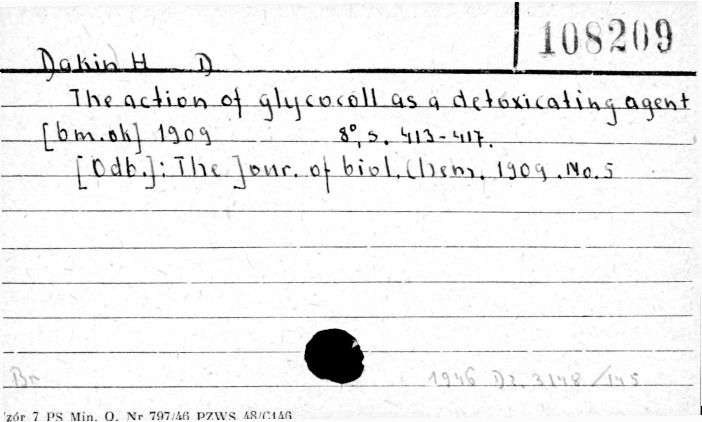 108209
Dakin H D
The action of glycocoll as a detoxicating agent
[bm.ok] 1909 8°, s. 413-417.
[Odb.]: The Jour. of biol. Chem. 1909. No. 5
Br 1946 Dz. 3148/145
zór 7 PS Min. O. Nr 797/46 PZWS 48/C146